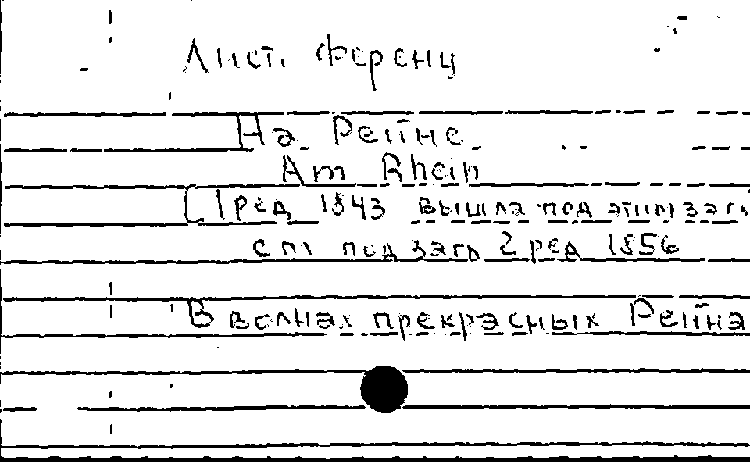 Лист. Ференц
На Рейне
Am Rhein
[1 ред 1843 вышла под этим заг.
см под загл 2 ред 1856
В волнах прекрасных Рейна